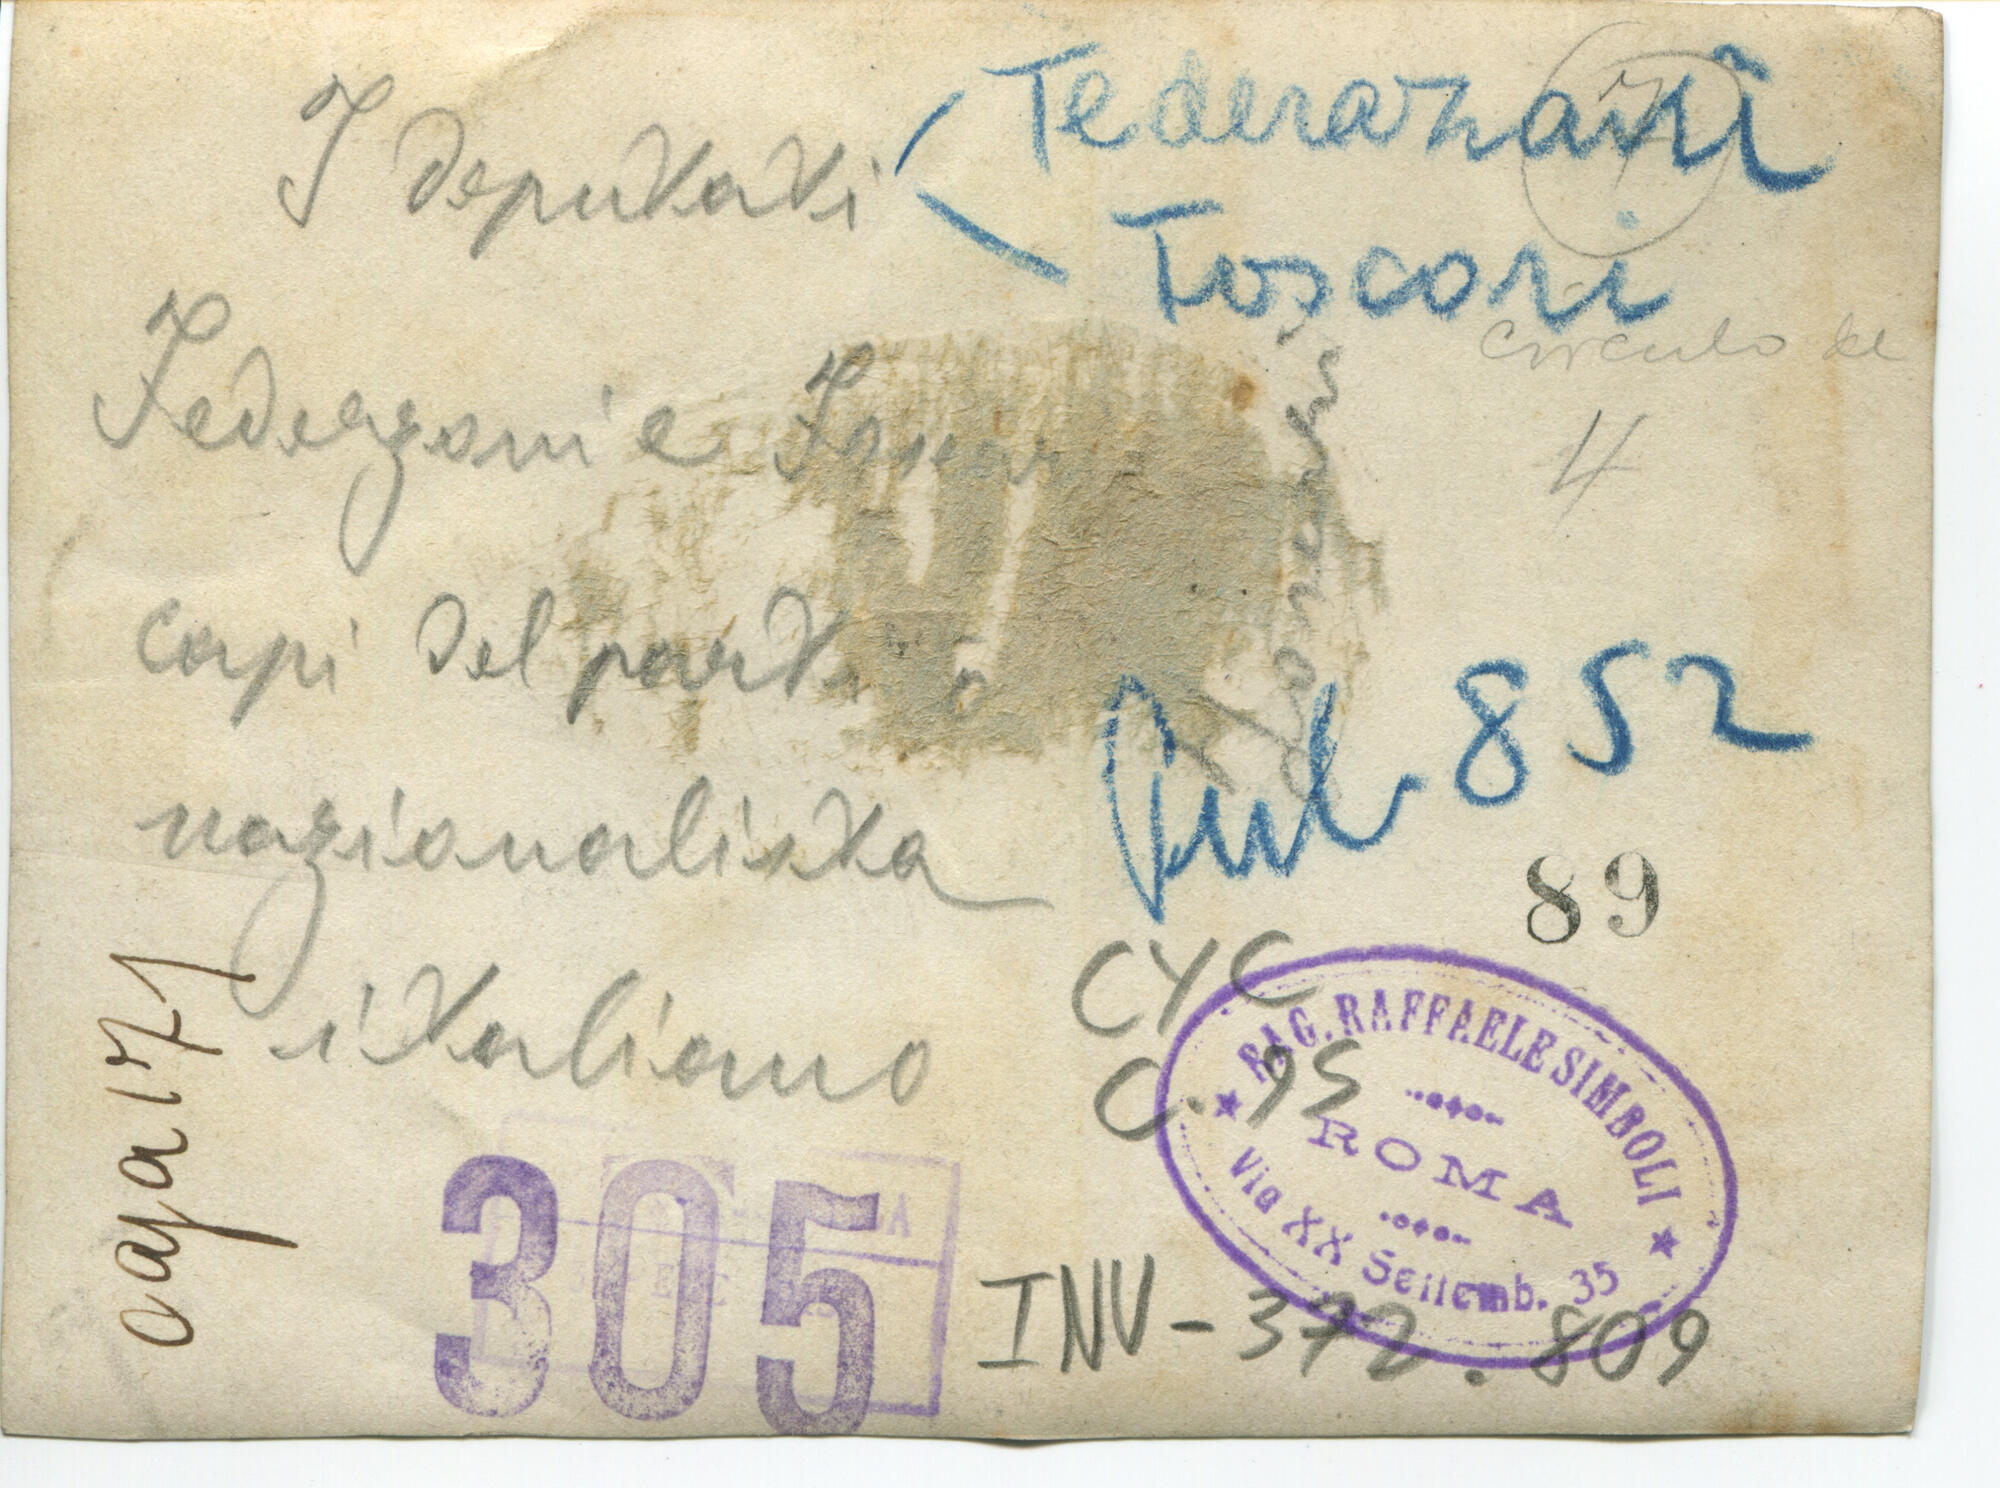 I deputati
Federzoni e
capi del partito
nazionalista
italiano
Toscori
circulo de
4
Pub 852
89
CYC
C. 95
RAG. RAFFAELE SIMBOLI
ROMA
Via XX Settemb. 35
INV - 372.809
305
caja 171